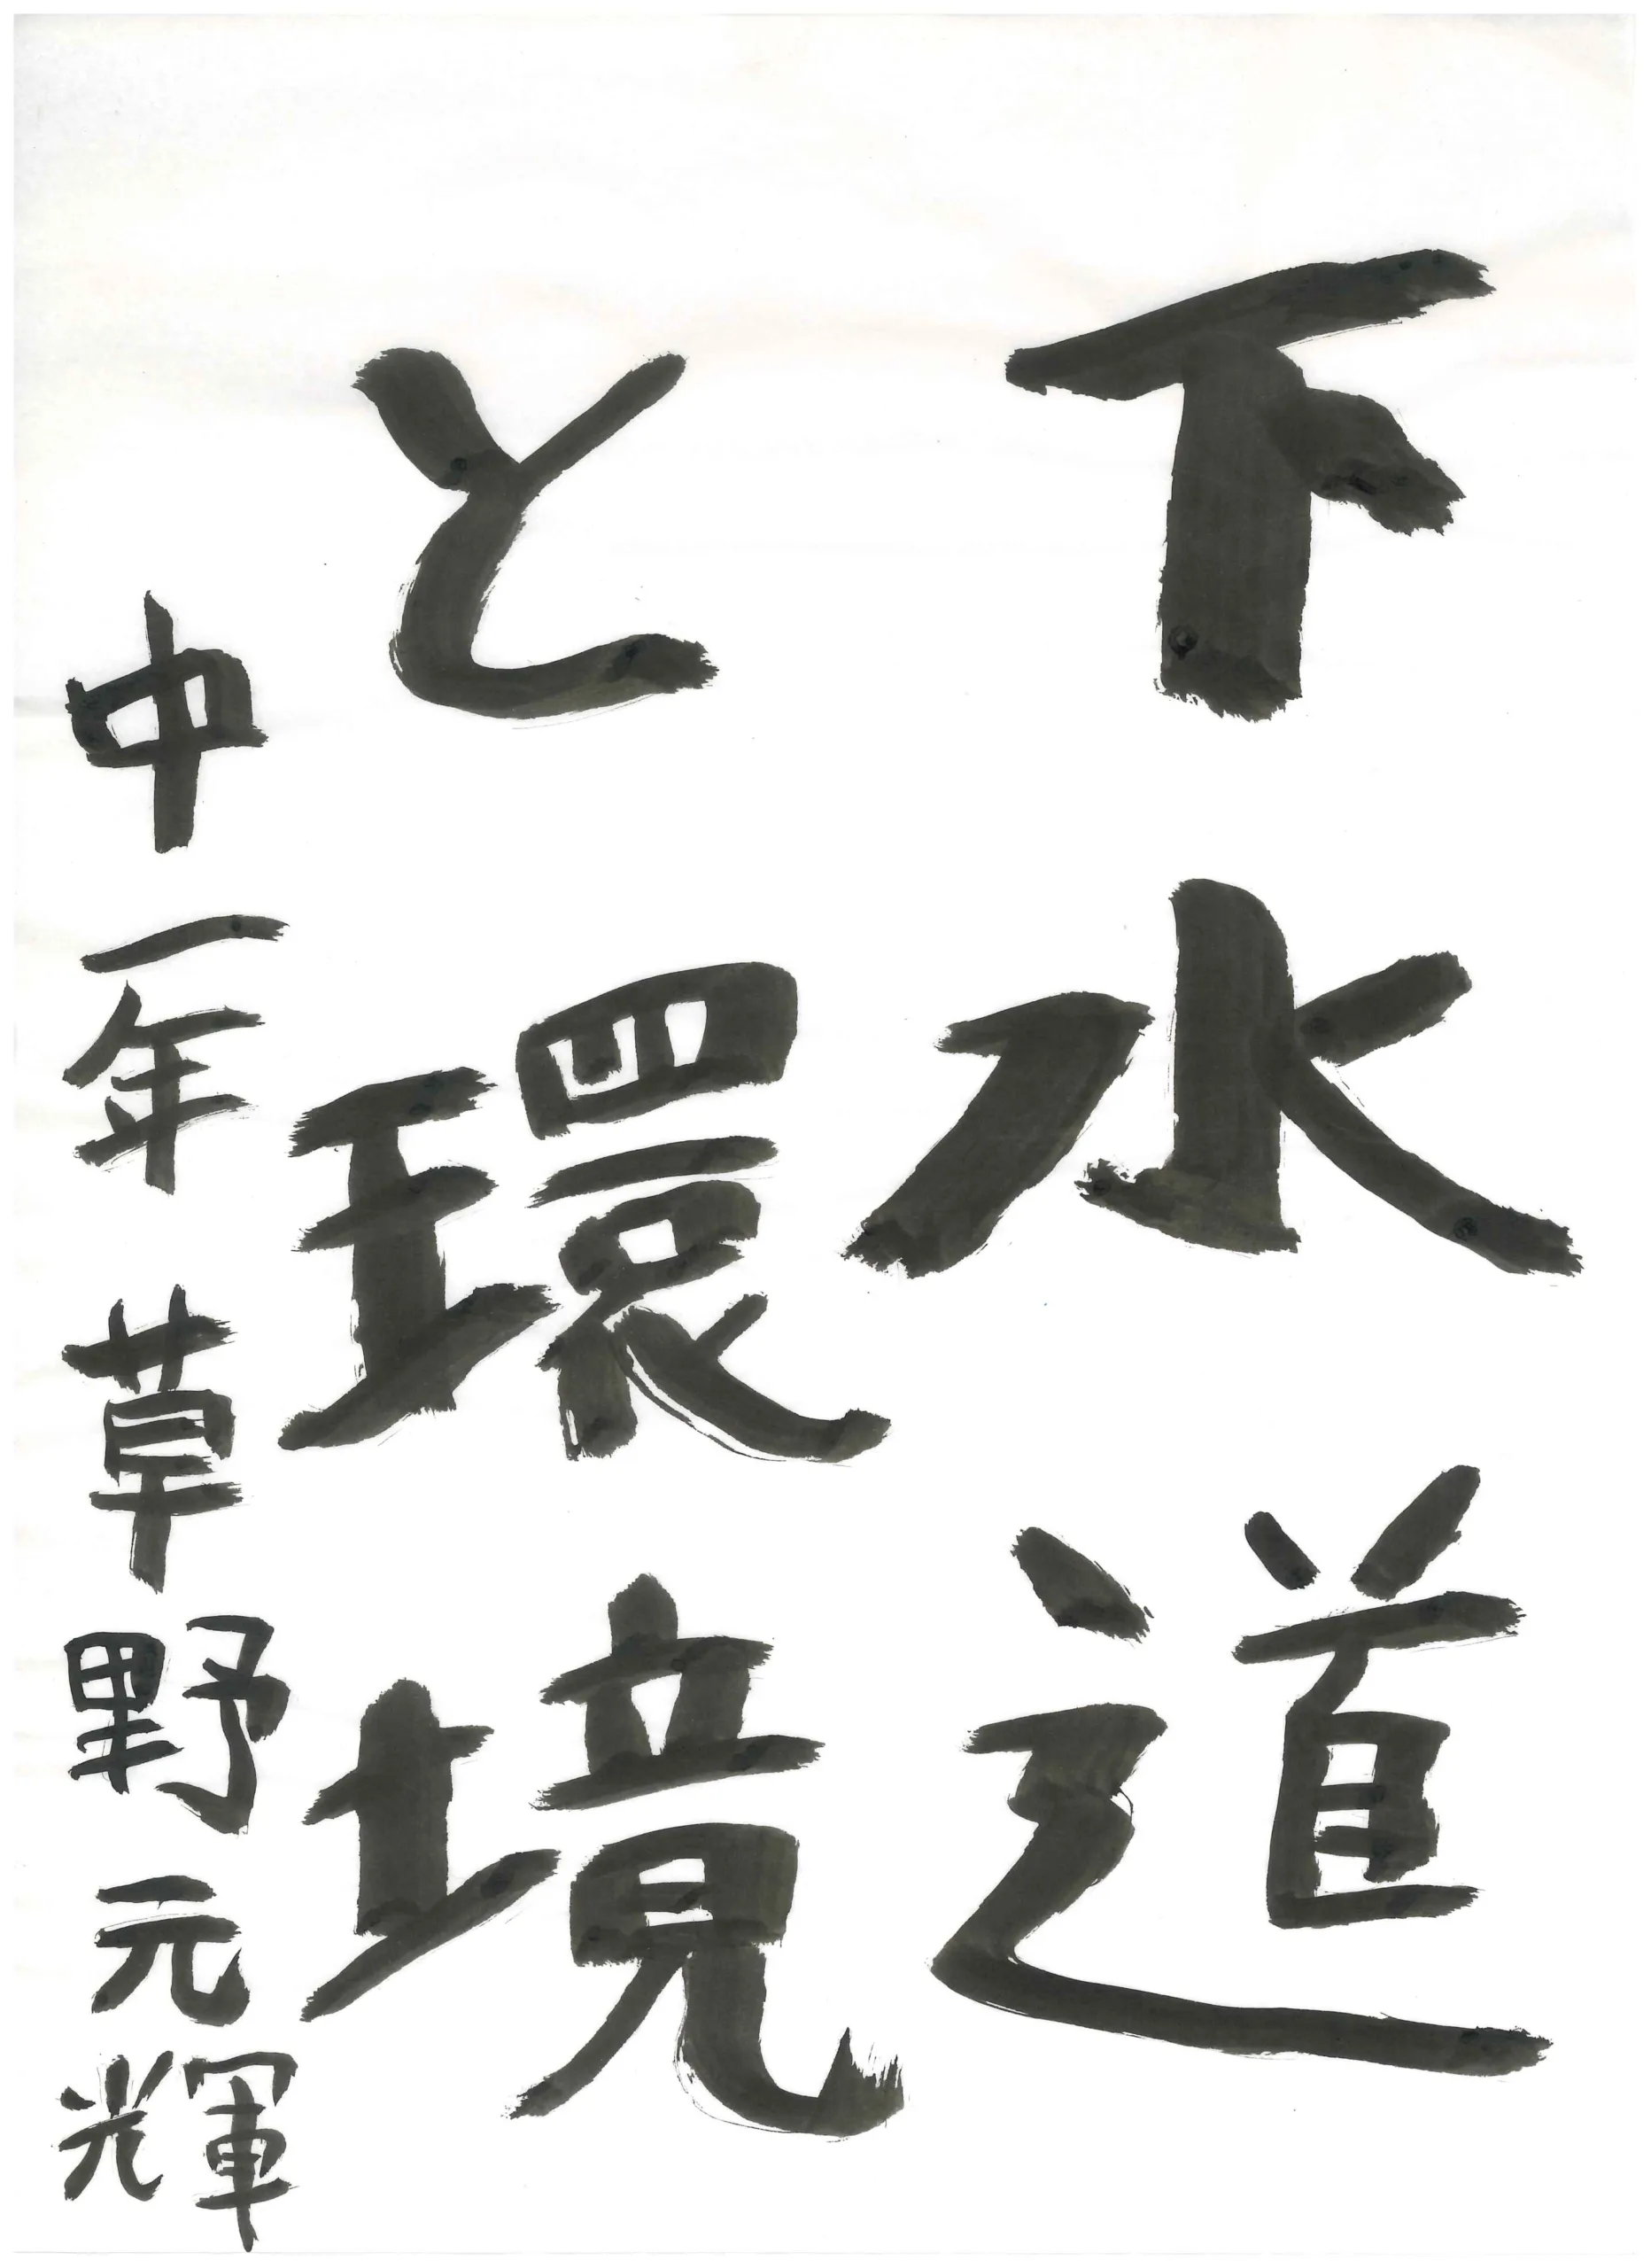 下水道
と環境
中一年 草野元輝